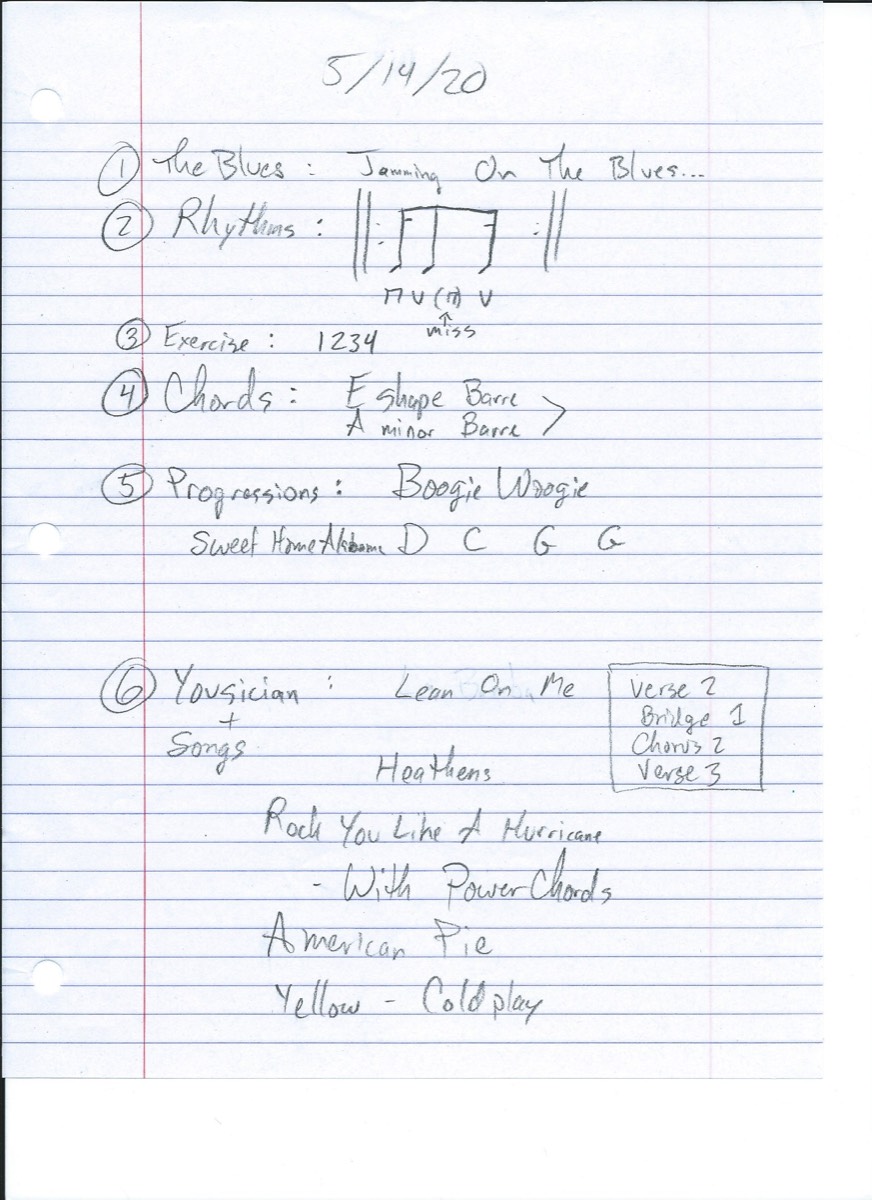 5/14/20
1 The Blues: Jamming On The Blues...
2 Rhythms:
⊓ V (⊓) V
↑
miss
3 Exercise: 1234
4 Chords: E shape Barre
A minor Barre >
5 Progressions: Boogie Woogie
Sweet Home Alabama D C G G
6 Yousician: Lean On Me
+
Songs
Verse 2
Bridge 1
Chorus 2
Verse 3
Heathens
Rock You Like A Hurricane
- With Power Chords
American Pie
Yellow - Coldplay